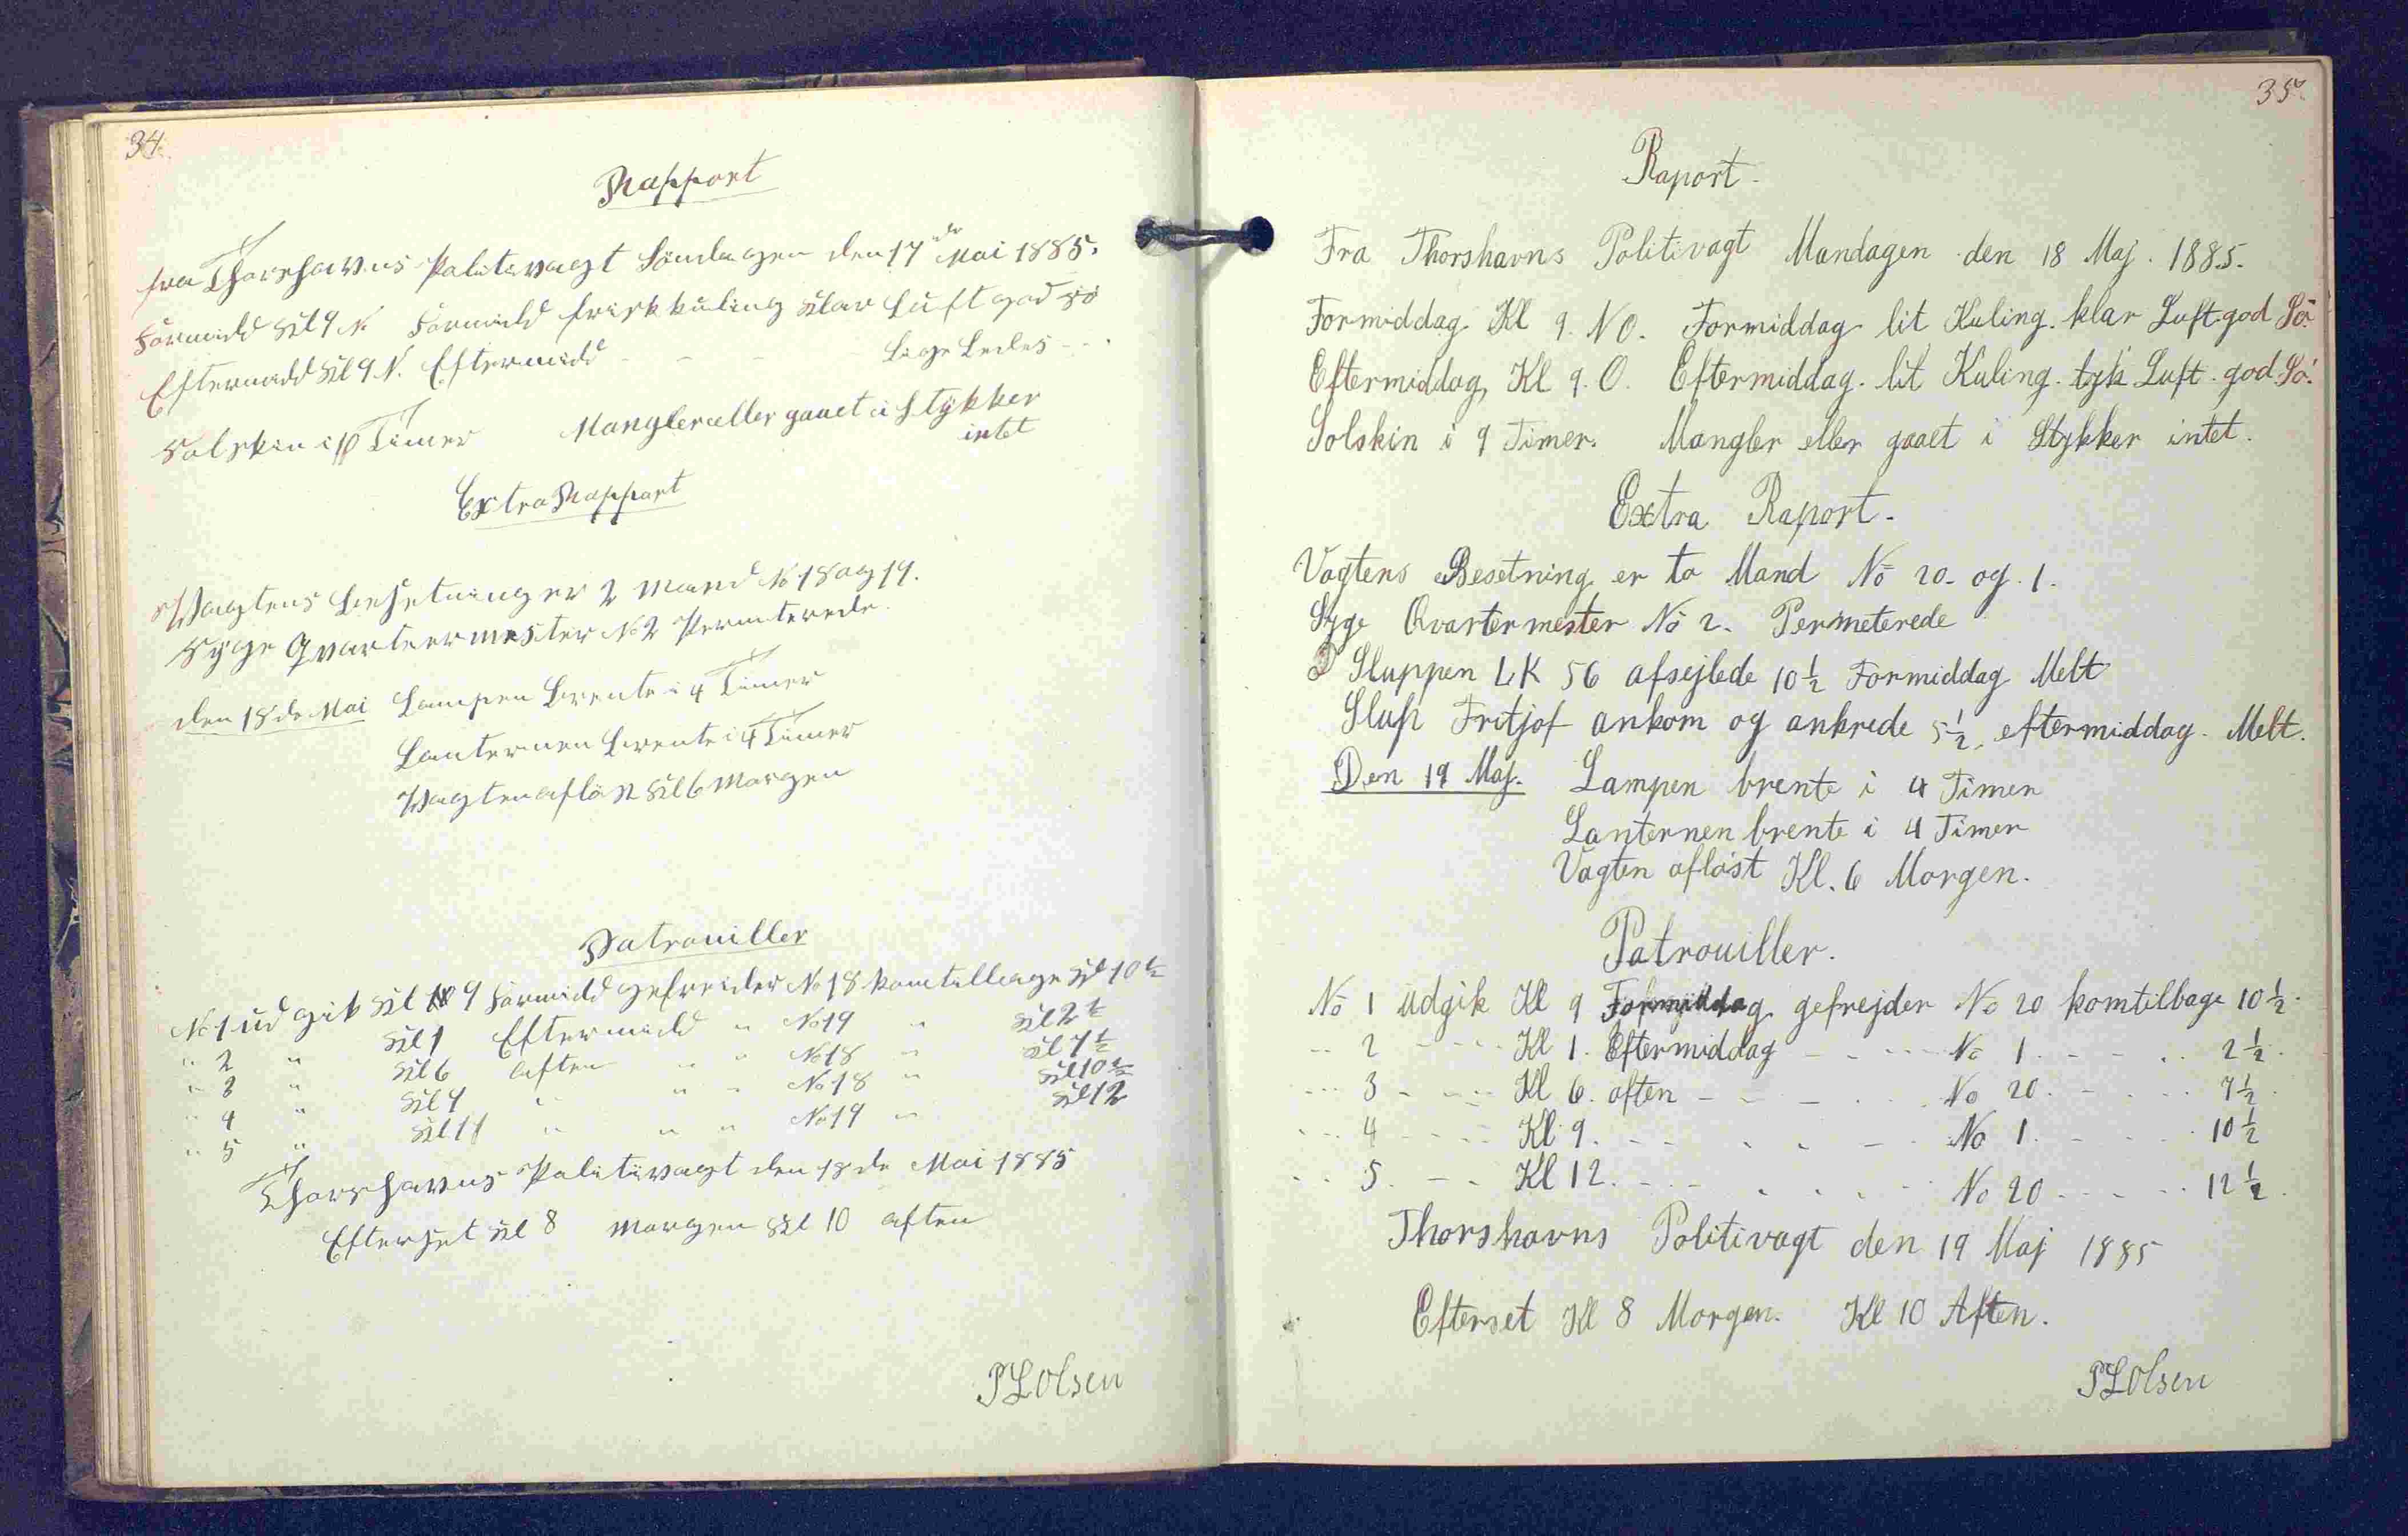 34.
Rapport
fra Thorshavns Politivagt Søndagen den 17de Mai 1885.
Formidd Kl 9 N. Formidd frisk kuling klar Luft god sö
Eftermidd Kl 9 N. Eftermidd - - - Lige Ledes - - .
Solskin i 10 Timer Mangler eller gaaet i Stykker
intet
Extra Rapport
Vagtens besetning er 2 Mand No 18 og 19.
Syge Qvarteermester No 2 Permterede.
den 18de Mai Lampen brente i 4 Timer
Lanternen brente i 4 Timer
Vagten aflöst Kl 6 Morgen
Patrouiller
No 1 ud gik Kl 9 Formidd gefreider No 18 kom tillbage Kl 10 ½
" 2 " Kl 1 Eftermidd " No 19 " Kl 2 ½
" 3 " Kl 6 aften " " No 18 " Kl 7 ½
" 4 " Kl 9 " " " No 18 " Kl 10 ½
" 5 " Kl 11 " " " No 19 " Kl 12
Thorshavns Politivagt den 18de Mai 1885
Efterset Kl 8 Morgen Kl 10 aften
P L Olsen
35.
Raport.
Fra Thorshavns Politivagt Mandagen den 18 Maj. 1885.
Formiddag Kl 9. NO. Formiddag lit Kuling. klar Luft. god Sö.
Eftermiddag, Kl 9. O. Eftermiddag. lit Kuling. tyk Luft. god. Sö.
Solskin i 9 Timer. Mangler eller gaaet i Stykker intet.
Extra Raport.
Vagtens Besetning er to Mand No 20. og. 1.
Syge Qvartermester No 2. Permeterede
Sluppen LK 56 afsejlede 10 ½ Formiddag Melt
Slup Fritjof ankom og ankrede 5 ½, eftermiddag. Melt.
Den 19 Maj. Lampen brente i 4 Timer
Lanternen brente i 4 Timer
Vagten aflöst Kl. 6 Morgen.
Patrouiller.
No 1 udgik Kl 9 Formiddag gefrejder No 20 komtilbage 10 ½.
" 2 - - - - Kl 1. Eftermiddag - - - - - No 1. - - . . 2 ½.
" 3 - - - - Kl 6. aften - - - . . . No 20. - . . . 7 ½.
" 4 - - - - Kl 9. - - . . - No 1. - . . . 10 ½
" 5. - - Kl 12. - - . . . . - No 20 - - - - - 12 ½.
Thorshavns Politivagt den 19 Maj 1885
Efterset Kl 8 Morgen. Kl 10 Aften.
P L Olsen